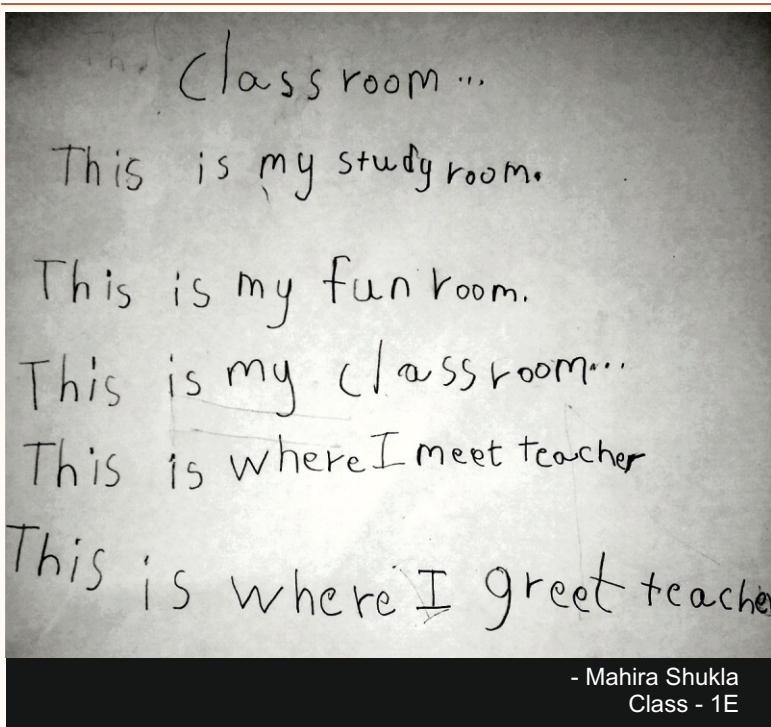 Classroom...
This is my study room.
This is my fun room.
This is my classroom...
This is where I meet teacher
This is where I greet teache
- Mahira Shukla
Class - 1E